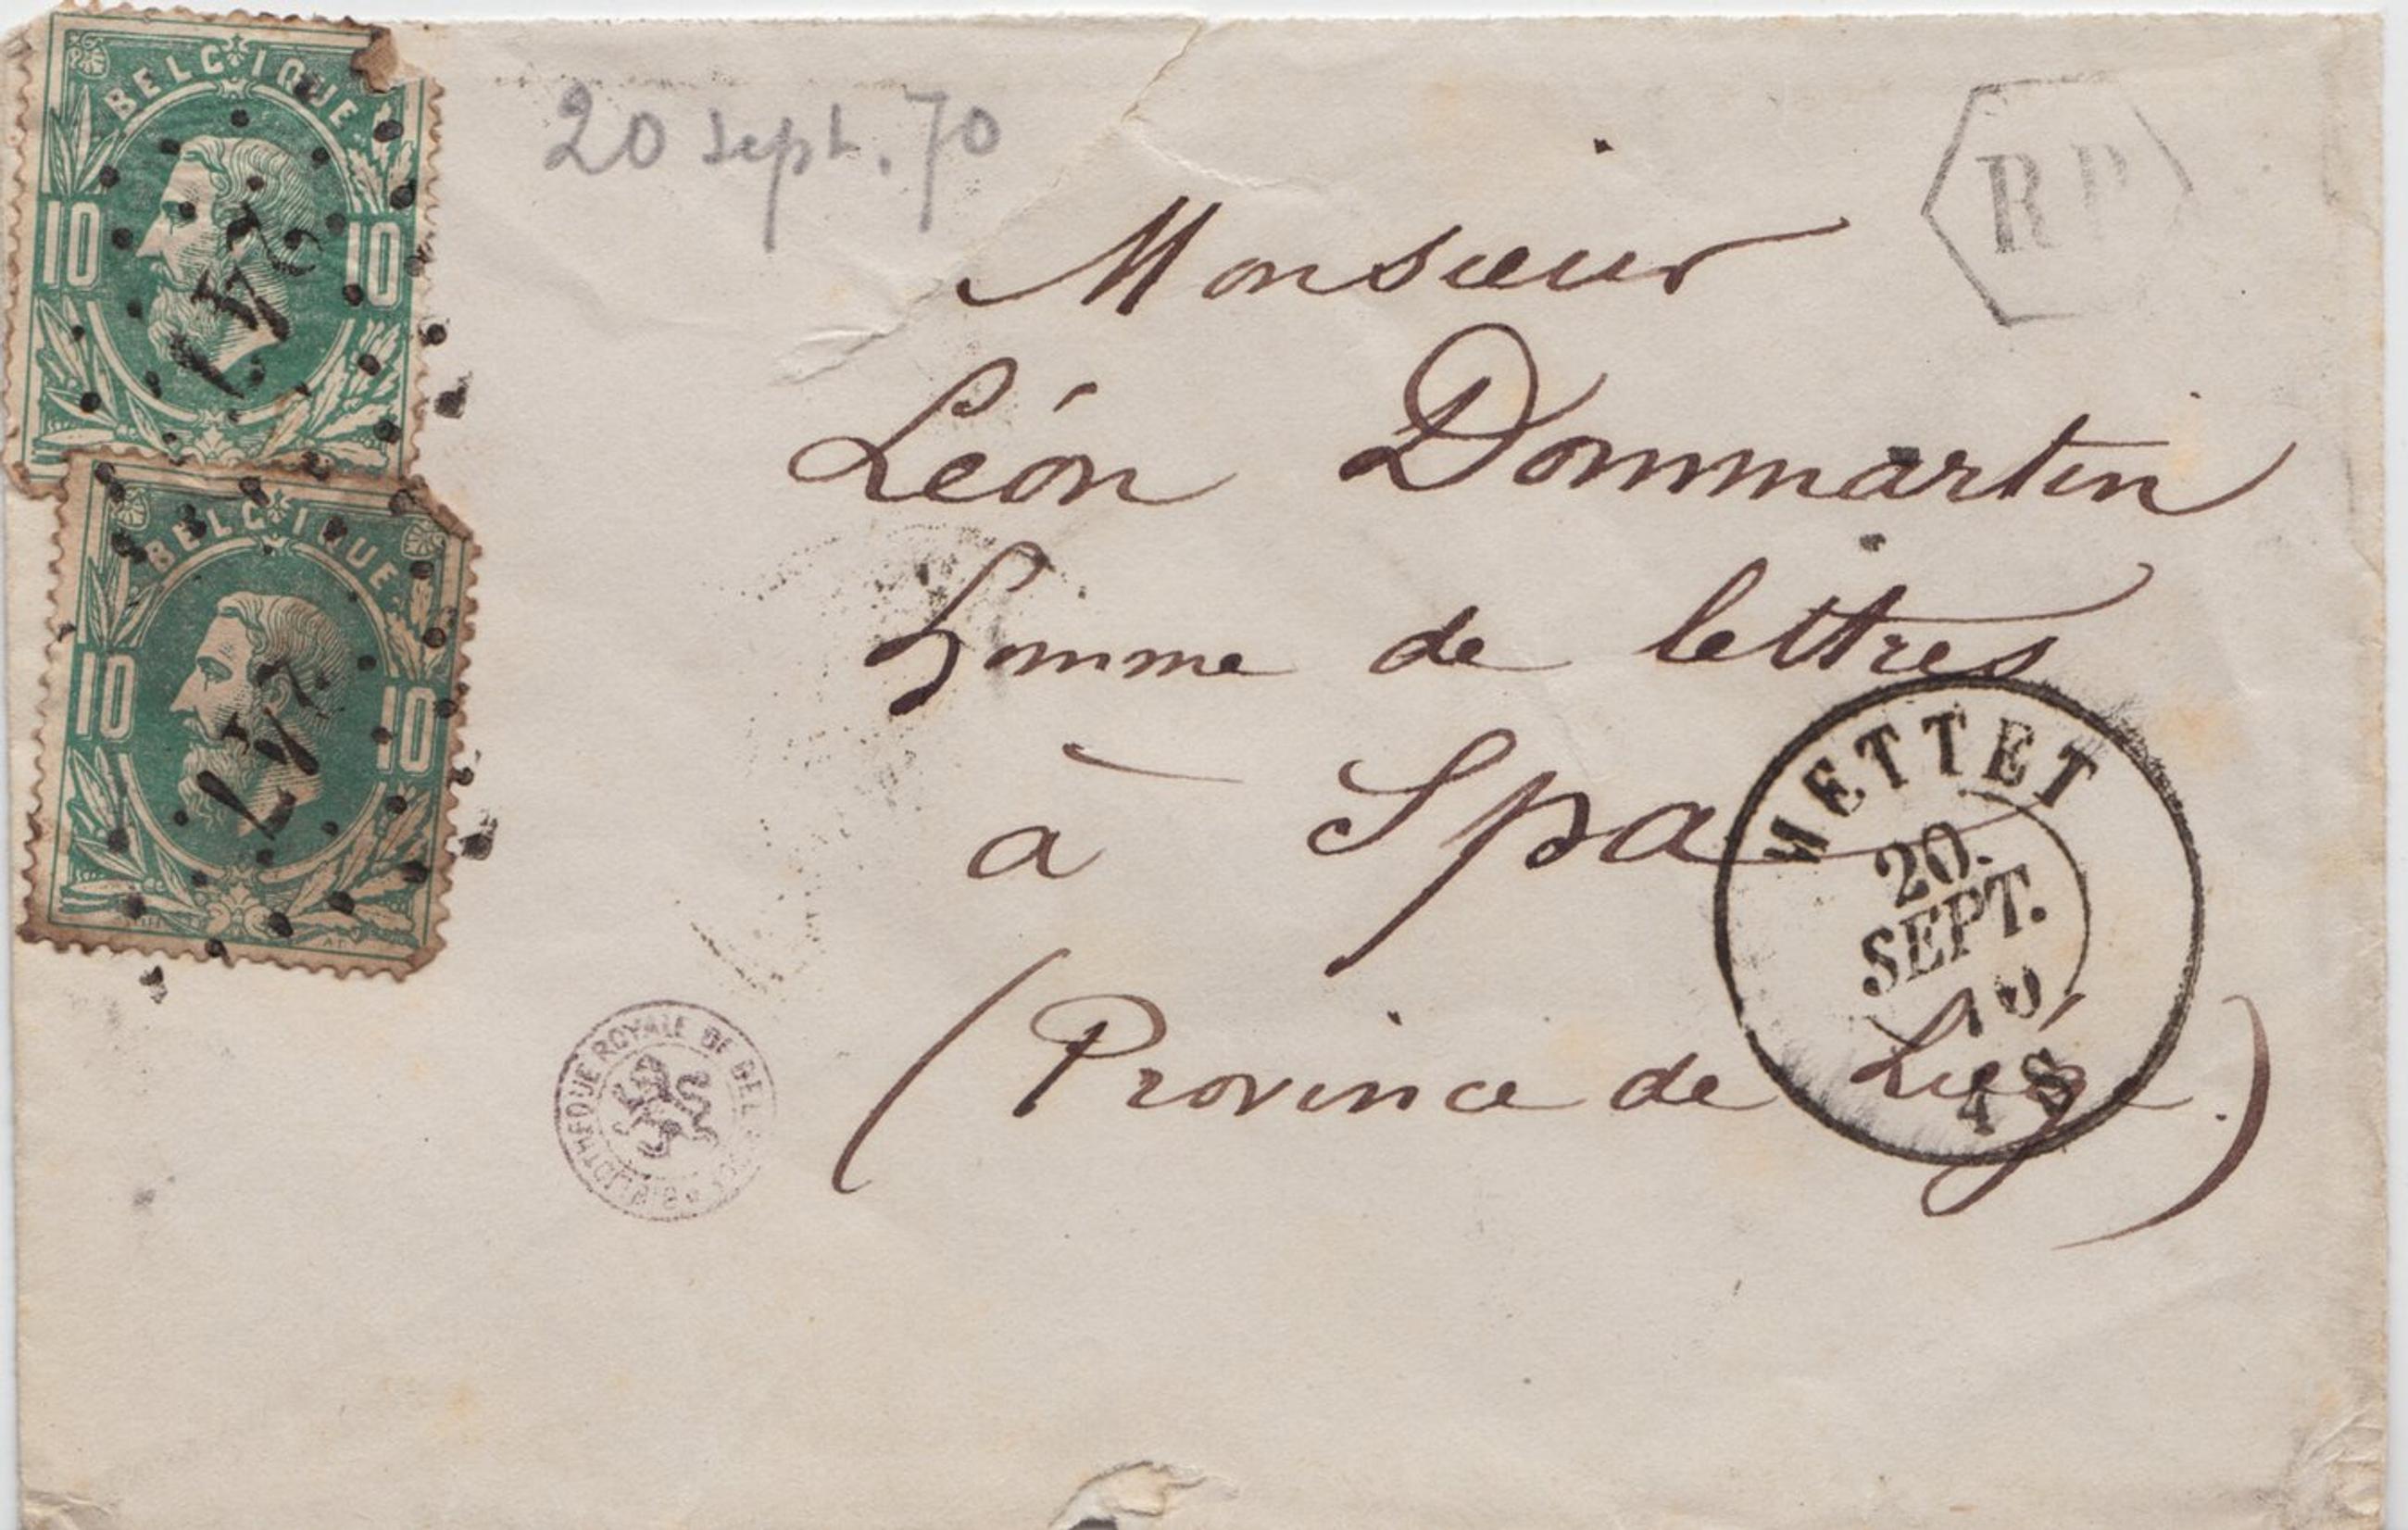 BELGIQUE
10 10
247
BELGIQUE
10 10
247
20 sept. 70
RP
Monsieur
Léon Dommartin
Homme de lettres
à Spa
(Province de Liège.)
METTET
20.
SEPT.
BIBLIOTHEQUE ROYALE DE